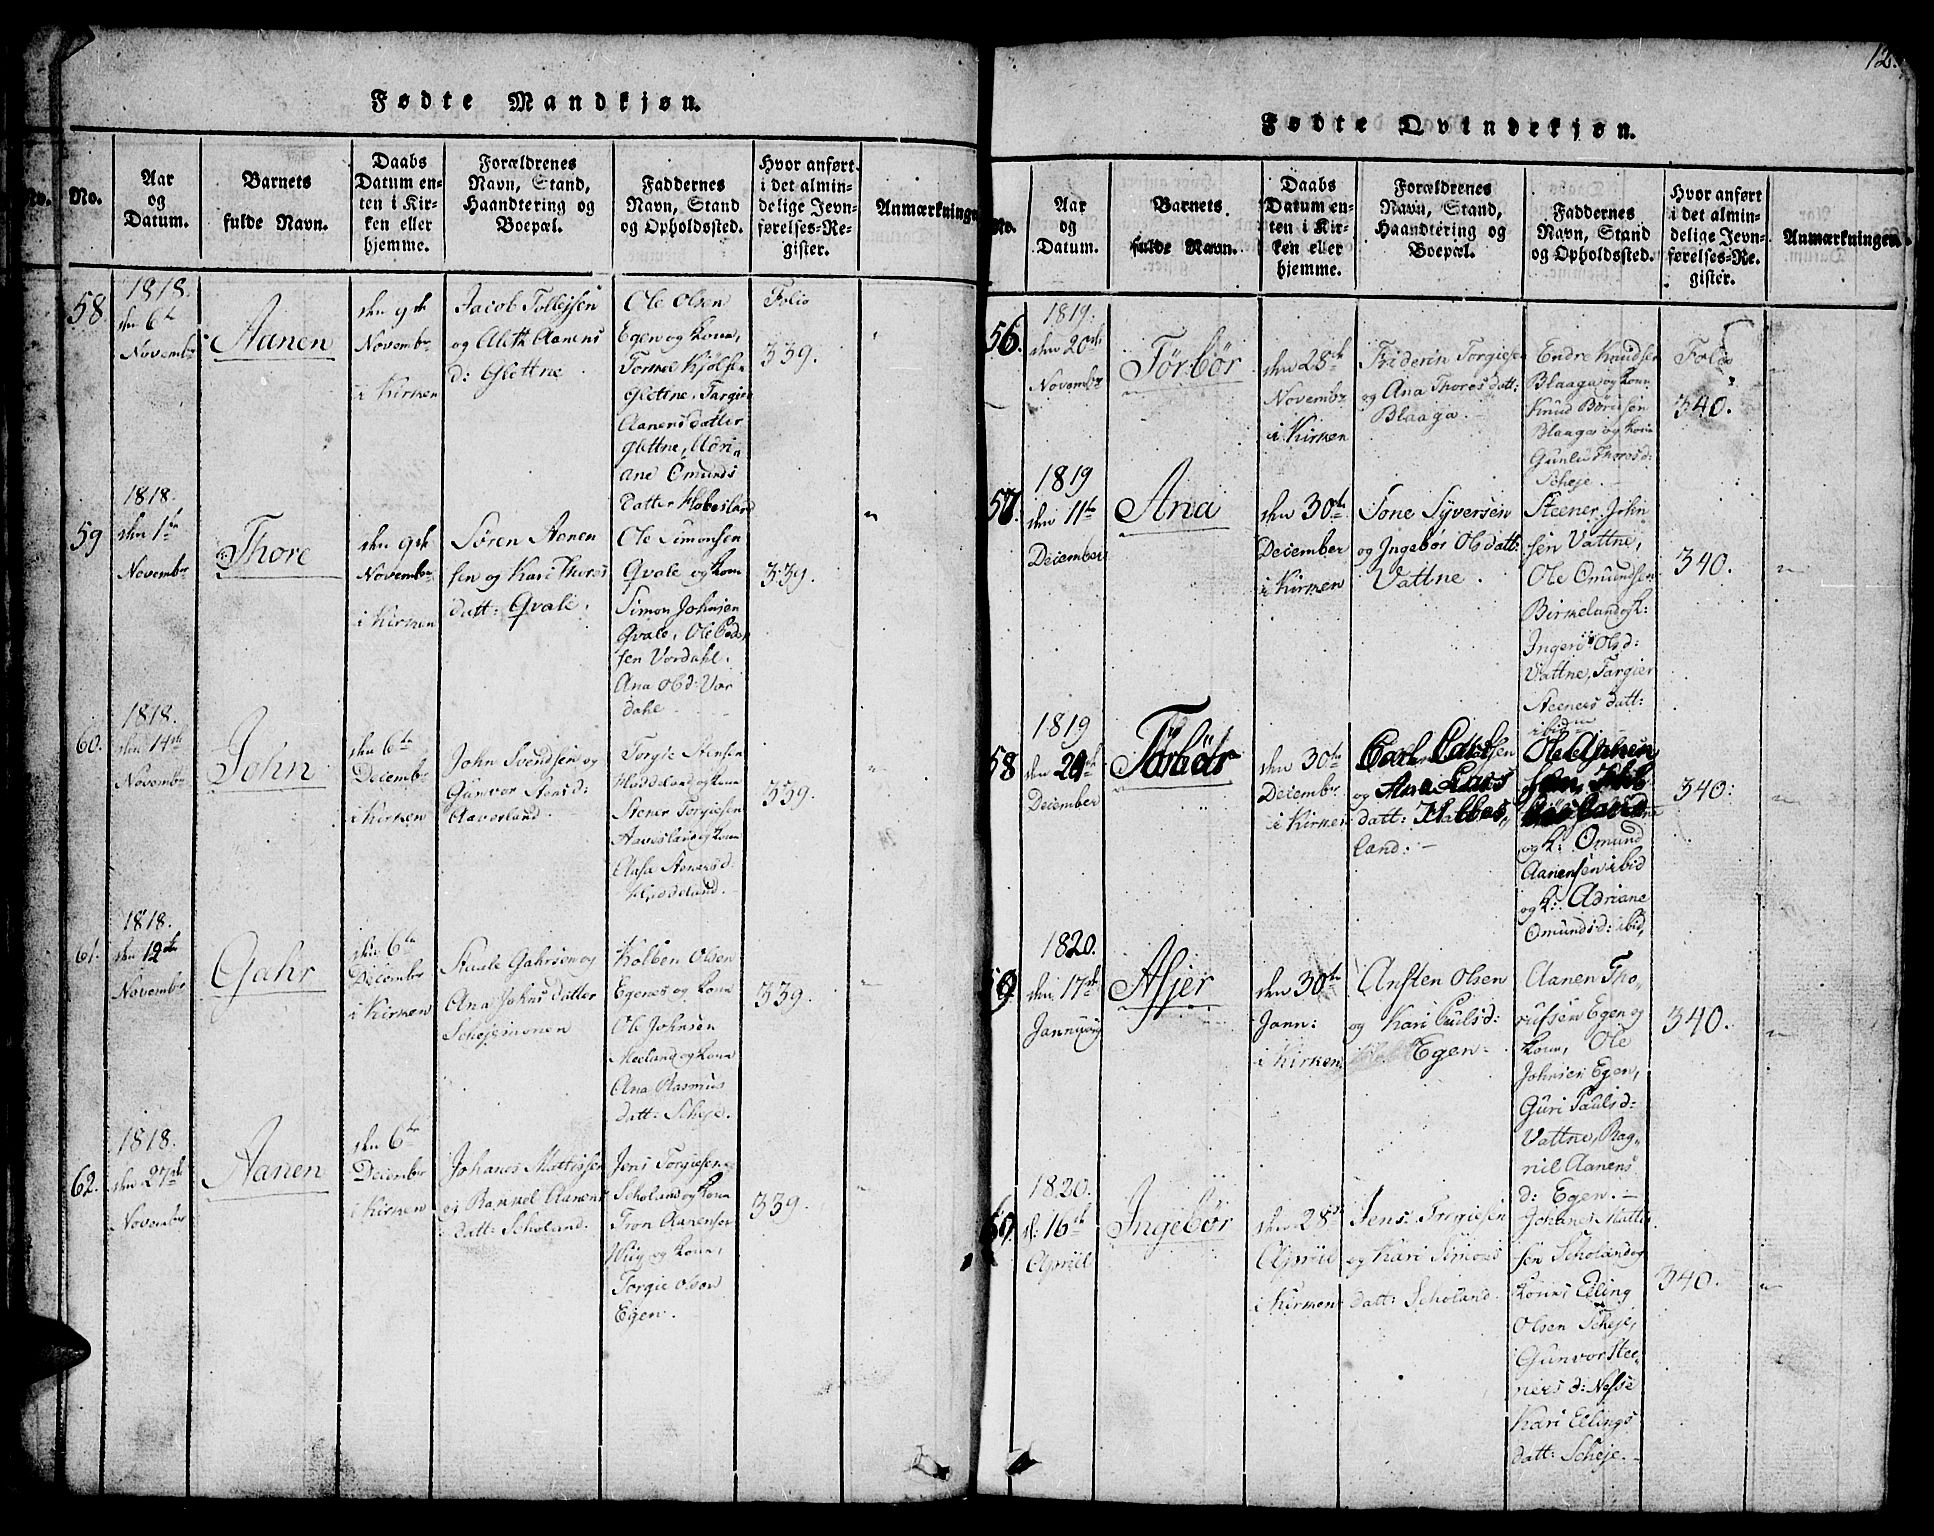 Fødte Mandkjøn.
No.
Aar
og
Datum.
Barnets
fulde Navn.
Daabs
Datum en-
ten i Kir-
ken eller
hjemme.
Forældrenes
Navn, Stand,
Haandtering og
Boepæl.
Faddernes
Navn, Stand
og Opholdssted.
Hvor anført
i det almin-
delige Jevn-
førelses-Re-
gister.
58.
1818.
den 6te
Novembr
Aanen
den 9de
Novembr
i Kirken
Jacob Tollejsen
og Aleth Aanens
d: Glettne
Ole Olsen
Egen og Kone,
Tormel Kjølsen
Glettne, Targier
Aanens datter
Glettne, Adri-
ane Omunds
datter Høbesland
Folio
339.
59
1818.
den 1te
Novembr
Thore
den 9de
Novembr
i Kirken
Sören Aanen
sen og Kari Thores
datt: Qvale.
Ole Simonsen
Qvale og Kone
Simon Johnsen
Qvale, Ole Peder
sen Vordahl.
Ana Olsd: Vor
dahl
339.
60.
1818.
den 14de
Novembr
John
den 6te
Decembr
i Kirken
John Svendsen og
Gunvor Stensd:
Haverland.
Torgie Stensen
Høddeland og Kone
Stener Torgiesen
Aavesland og Kone
Aasa Stenersd.
Høddeland.
339.
61.
1818.
den 12te
Novembr
Gahr
den 6te
Decembr
i Kirken
Staale Gahrsen og
Ana Johns datter
Schejemonen
Kolben Olsen
Egenes og Kone
Ole Johnsen
Meeland og Kone
Ana Rasmus
datt: Scheje.
339.
62.
1818.
den 27de
Novembr
Aanen
den 6te
Decembr
i Kirken
Johanes Mattissen
og Rannel Aanens
datt: Scholand:
Jens Torgiesen
Scholand og Kone
Tron Aanensen
Huig og Kone,
Torgie Olsen
Egen.
339.
12.
Fødte Qvindekjøn.
No.
Aar
og
Datum.
Barnets
fulde Navn.
Daabs
Datum en-
ten i Kir-
ken eller
hjemme.
Forældrenes
Navn, Stand,
Haandtering og
Boepæl.
Faddernes
Navn, Stand
og Opholdssted.
Hvor anført
i det almin-
delige Jevn-
førelses-Re-
gister.
Anmærkninger.
56.
1819.
den 20de
Novembr
Törbör
den 28de
Novembr
i Kirken
Friderin Torgiesen
og Ana Thores datt:
Blaaga.
Endre Knudsen
Blaaga og Kone
Knud Börusen
Blaaga og Kone
Gunlu Thoresd:
Scheje.
Folio
340.
57.
1819
den 11te
December
Ana
den 30te
December
i Kirken
Tone Syversen
og Ingebör Olsdatt:
Vattne.
Steener John
sen Vattne,
Ole Omundsen
Birkeland og K:
Ingeri Olsd:
Vattne, Targier
Steeners datt:
ibidm
340.
58
1819
den 24de
December
Törbör
den 30te
Decembr
i Kirken
Carl Larsen
og Ana Lars
datt: Høbbes
land:
Ole Aanen
sen, Høb
besland
og K: Omund
Aanensen ibid
og K: Adriane
Omundsd: ibid,
340:
59
1820.
den 17de
Januuary
Asjer
den 30te
Jann:
i Kirken
Ansten Olsen
og Kari Pulsd:
Egen.
Aanen Tho-
rufsen Egen og
Kone, Ole
Johnsen Egen,
Guri Paulsd:
Vattne, Rag-
nil Aanens
d: Egen.
340.
60.
1820.
d: 16de
Apriil
Ingebör
den 28de
Apriil
i Kirken
Jens Torgiesen
og Kari Simons
datt: Scholand.
Johanes Mattis
sen Scholand og
Kone, Elling
Olsen Scheje,
Gunvor Stee-
ners d: Nesse
Kari Ellings
datt: Scheje.
340.